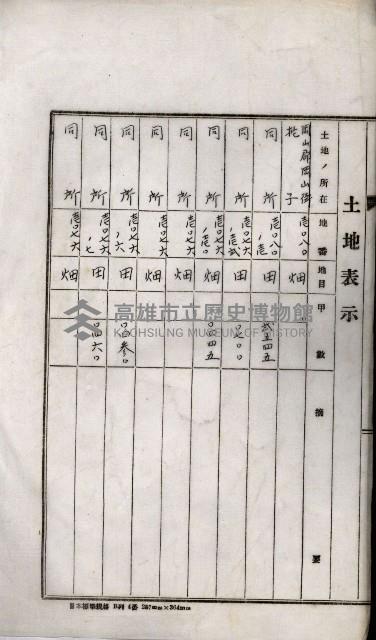 土地表示
土地ノ所在 地番 地目 甲數 摘要
岡山郡岡山街 壱〇八〇 畑
同所 壱〇八〇 田
同所 壱〇七六 田 〇七〇〇
同所 壱〇七六 畑
同所 壱〇七六 畑
同所 壱〇七六 畑
同所 壱〇七六ノ六 田
同所 壱〇七六ノ七 田 〇四六〇
同所 壱〇七六 畑
高雄市立歷史博物館
KAOHSIUNG MUSEUM OF HISTORY
日本標準規格 B列 4番 257mm×364mm